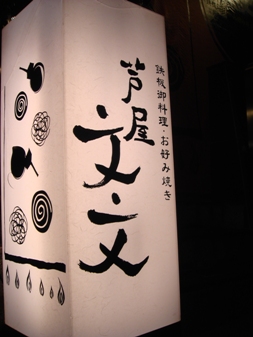 鉄板御料理・お好み焼き
芦屋
文文